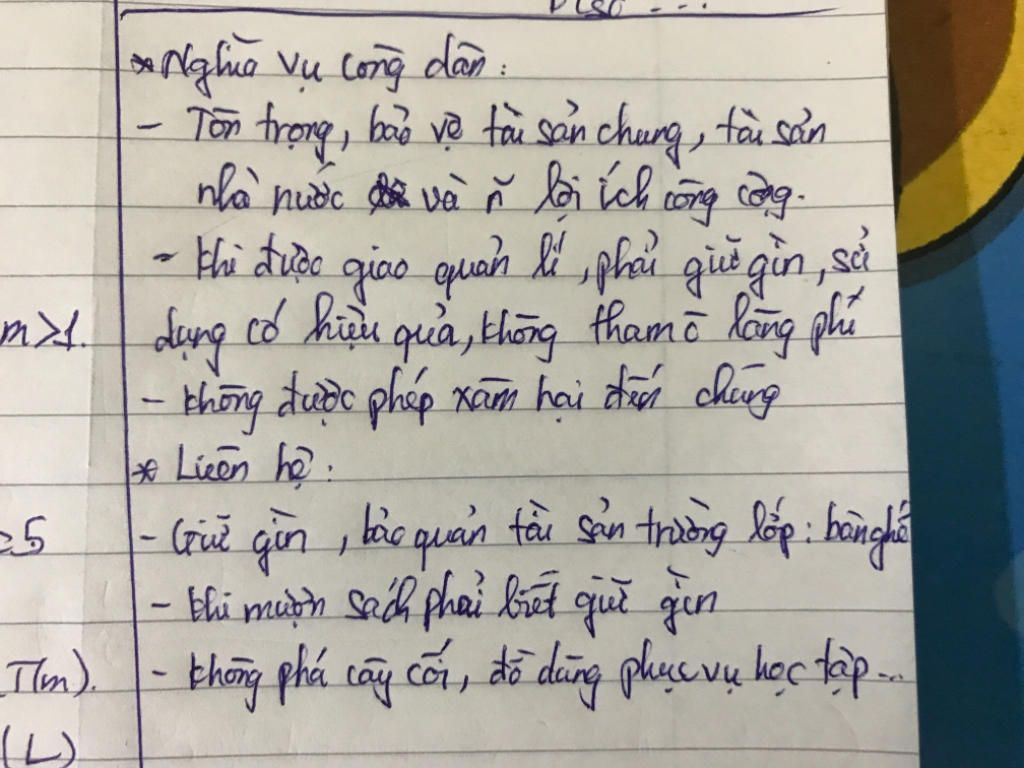 * Nghĩa vụ công dân:
- Tôn trọng, bảo vệ tài sản chung, tài sản
nhà nước và ñ lợi ích công cộng.
- Khi được giao quản lí, phải giữ gìn, sử
m>1.
dụng có hiệu quả, không tham ô lãng phí
- Không được phép xâm hại đến chúng
* Liên hệ:
=5
- Giữ gìn, bảo quản tài sản trường lớp: bàn ghế
- Khi mượn sách phải biết giữ gìn
T(m).
- Không phá cây cối, đồ dùng phục vụ học tập...
(L)